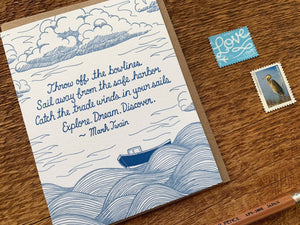 Throw off the bowlines.
Sail away from the safe harbor.
Catch the trade winds in your sails.
Explore. Dream. Discover.
~ Mark Twain
Love